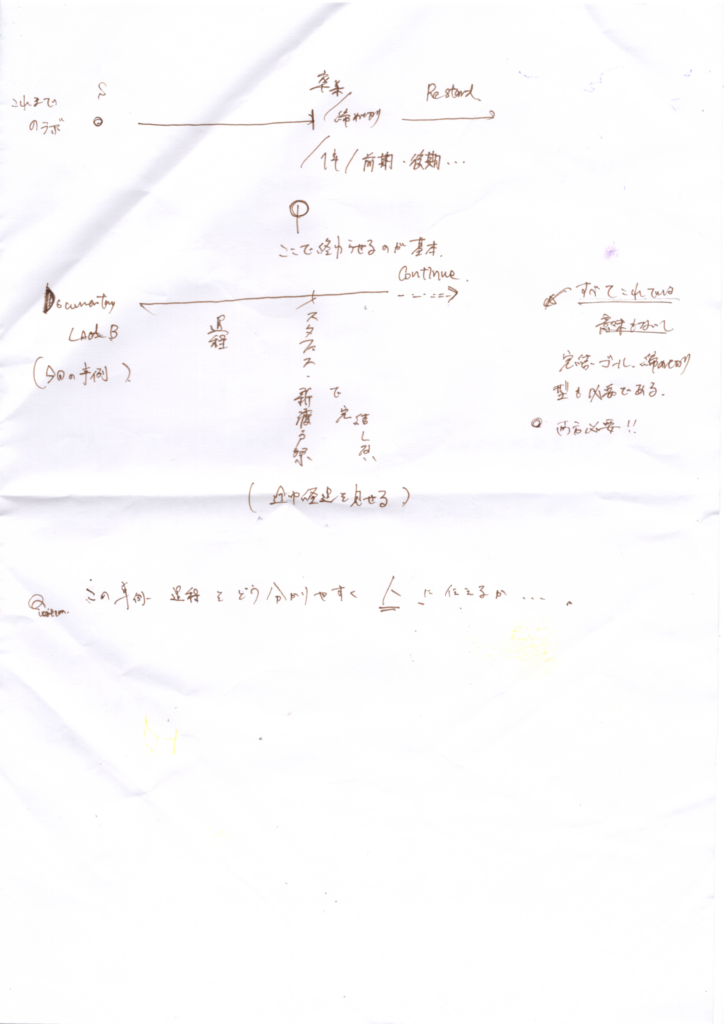 S
これまで
のラボ
卒業
/
締め切り
Restart
/1年/前期・後期…
ここで終わらせるのが基本.
Documentary
Lab B
(今回の事例)
過程
Continue.
で完結し
(途中経過を見せる)
すべてこれでは
意味もないし
完結・ゴール、締め切り
型も必要である.
両方必要!!
Question この事例 過程をどう分かりやすく 人に伝えるか….